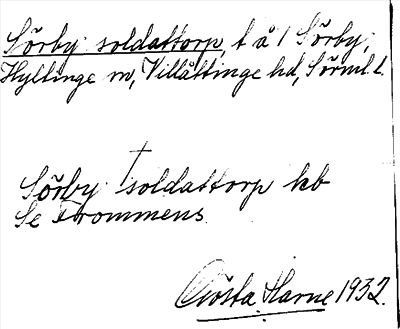 Sörby soldattorp, t å 1 Sörby,
Hyltinge sn, Villåttinge hd, Sörml. l.
Sörby soldattorp kb
Se Trommens.
Gösta Harne 1932.